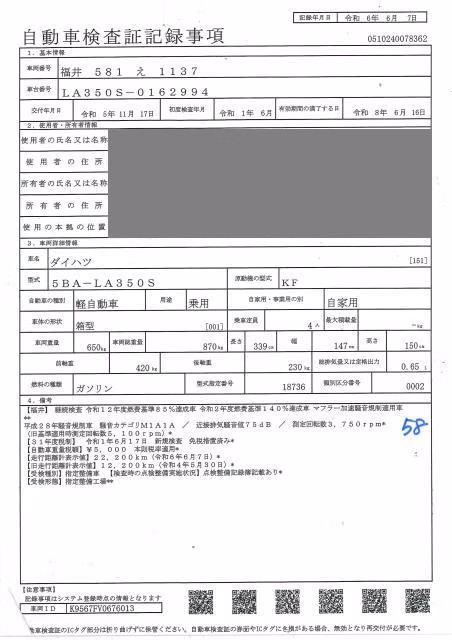 記録年月日 令和 6年 6月 7日
自動車検査証記録事項
0510240078362
1．基本情報
車両番号 福井 581 え 1137
車台番号 LA350S-0162994
交付年月日 令和 5年11月17日 初度検査年月 令和 1年 6月 有効期間の満了する日 令和 8年 6月16日
2．使用者・所有者情報
使用者の氏名又は名称
使用者の住所
所有者の氏名又は名称
所有者の住所
使用の本拠の位置
3．車両詳細情報
車名 ダイハツ [151]
型式 5BA-LA350S 原動機の型式 KF
自動車の種別 軽自動車 用途 乗用 自家用・事業用の別 自家用
車体の形状 箱型 [001] 乗車定員 4人 最大積載量 -kg
車両重量 650kg 車両総重量 870kg 長さ 339cm 幅 147cm 高さ 150cm
前軸重 420kg 後軸重 230kg 総排気量又は定格出力 0.65 L
燃料の種類 ガソリン 型式指定番号 18736 類別区分番号 0002
4．備考
[福井] 継続検査 令和12年度燃費基準85％達成車 令和2年度燃費基準140％達成車 マフラー加速騒音規制適用車
**
平成28年騒音規制車 騒音カテゴリM1A1A ／ 近接排気騒音値75dB ／ 測定回転数3,750rpm*
(旧基準適用時測定回転数5,100rpm)*
[31年度税制] 令和1年6月17日 新規検査 免税措置済み*
[自動車重量税額] ¥5,000 本則税率適用*
[走行距離計表示値] 22,200km (令和6年6月7日)*
[旧走行距離計表示値] 12,200km (令和4年5月30日)*
[受検種別] 指定整備車 [検査時の点検整備実施状況] 点検整備記録簿記載あり*
[受検形態] 指定整備工場**
58
【注意事項】
記録事項はシステム登録時点の情報となります
車両ID K9567FV0676013
自動車検査証のICタグ部分は折り曲げずに保管ください。自動車検査証の券面やICタグに毛損がある場合、無効となり再交付が必要です。